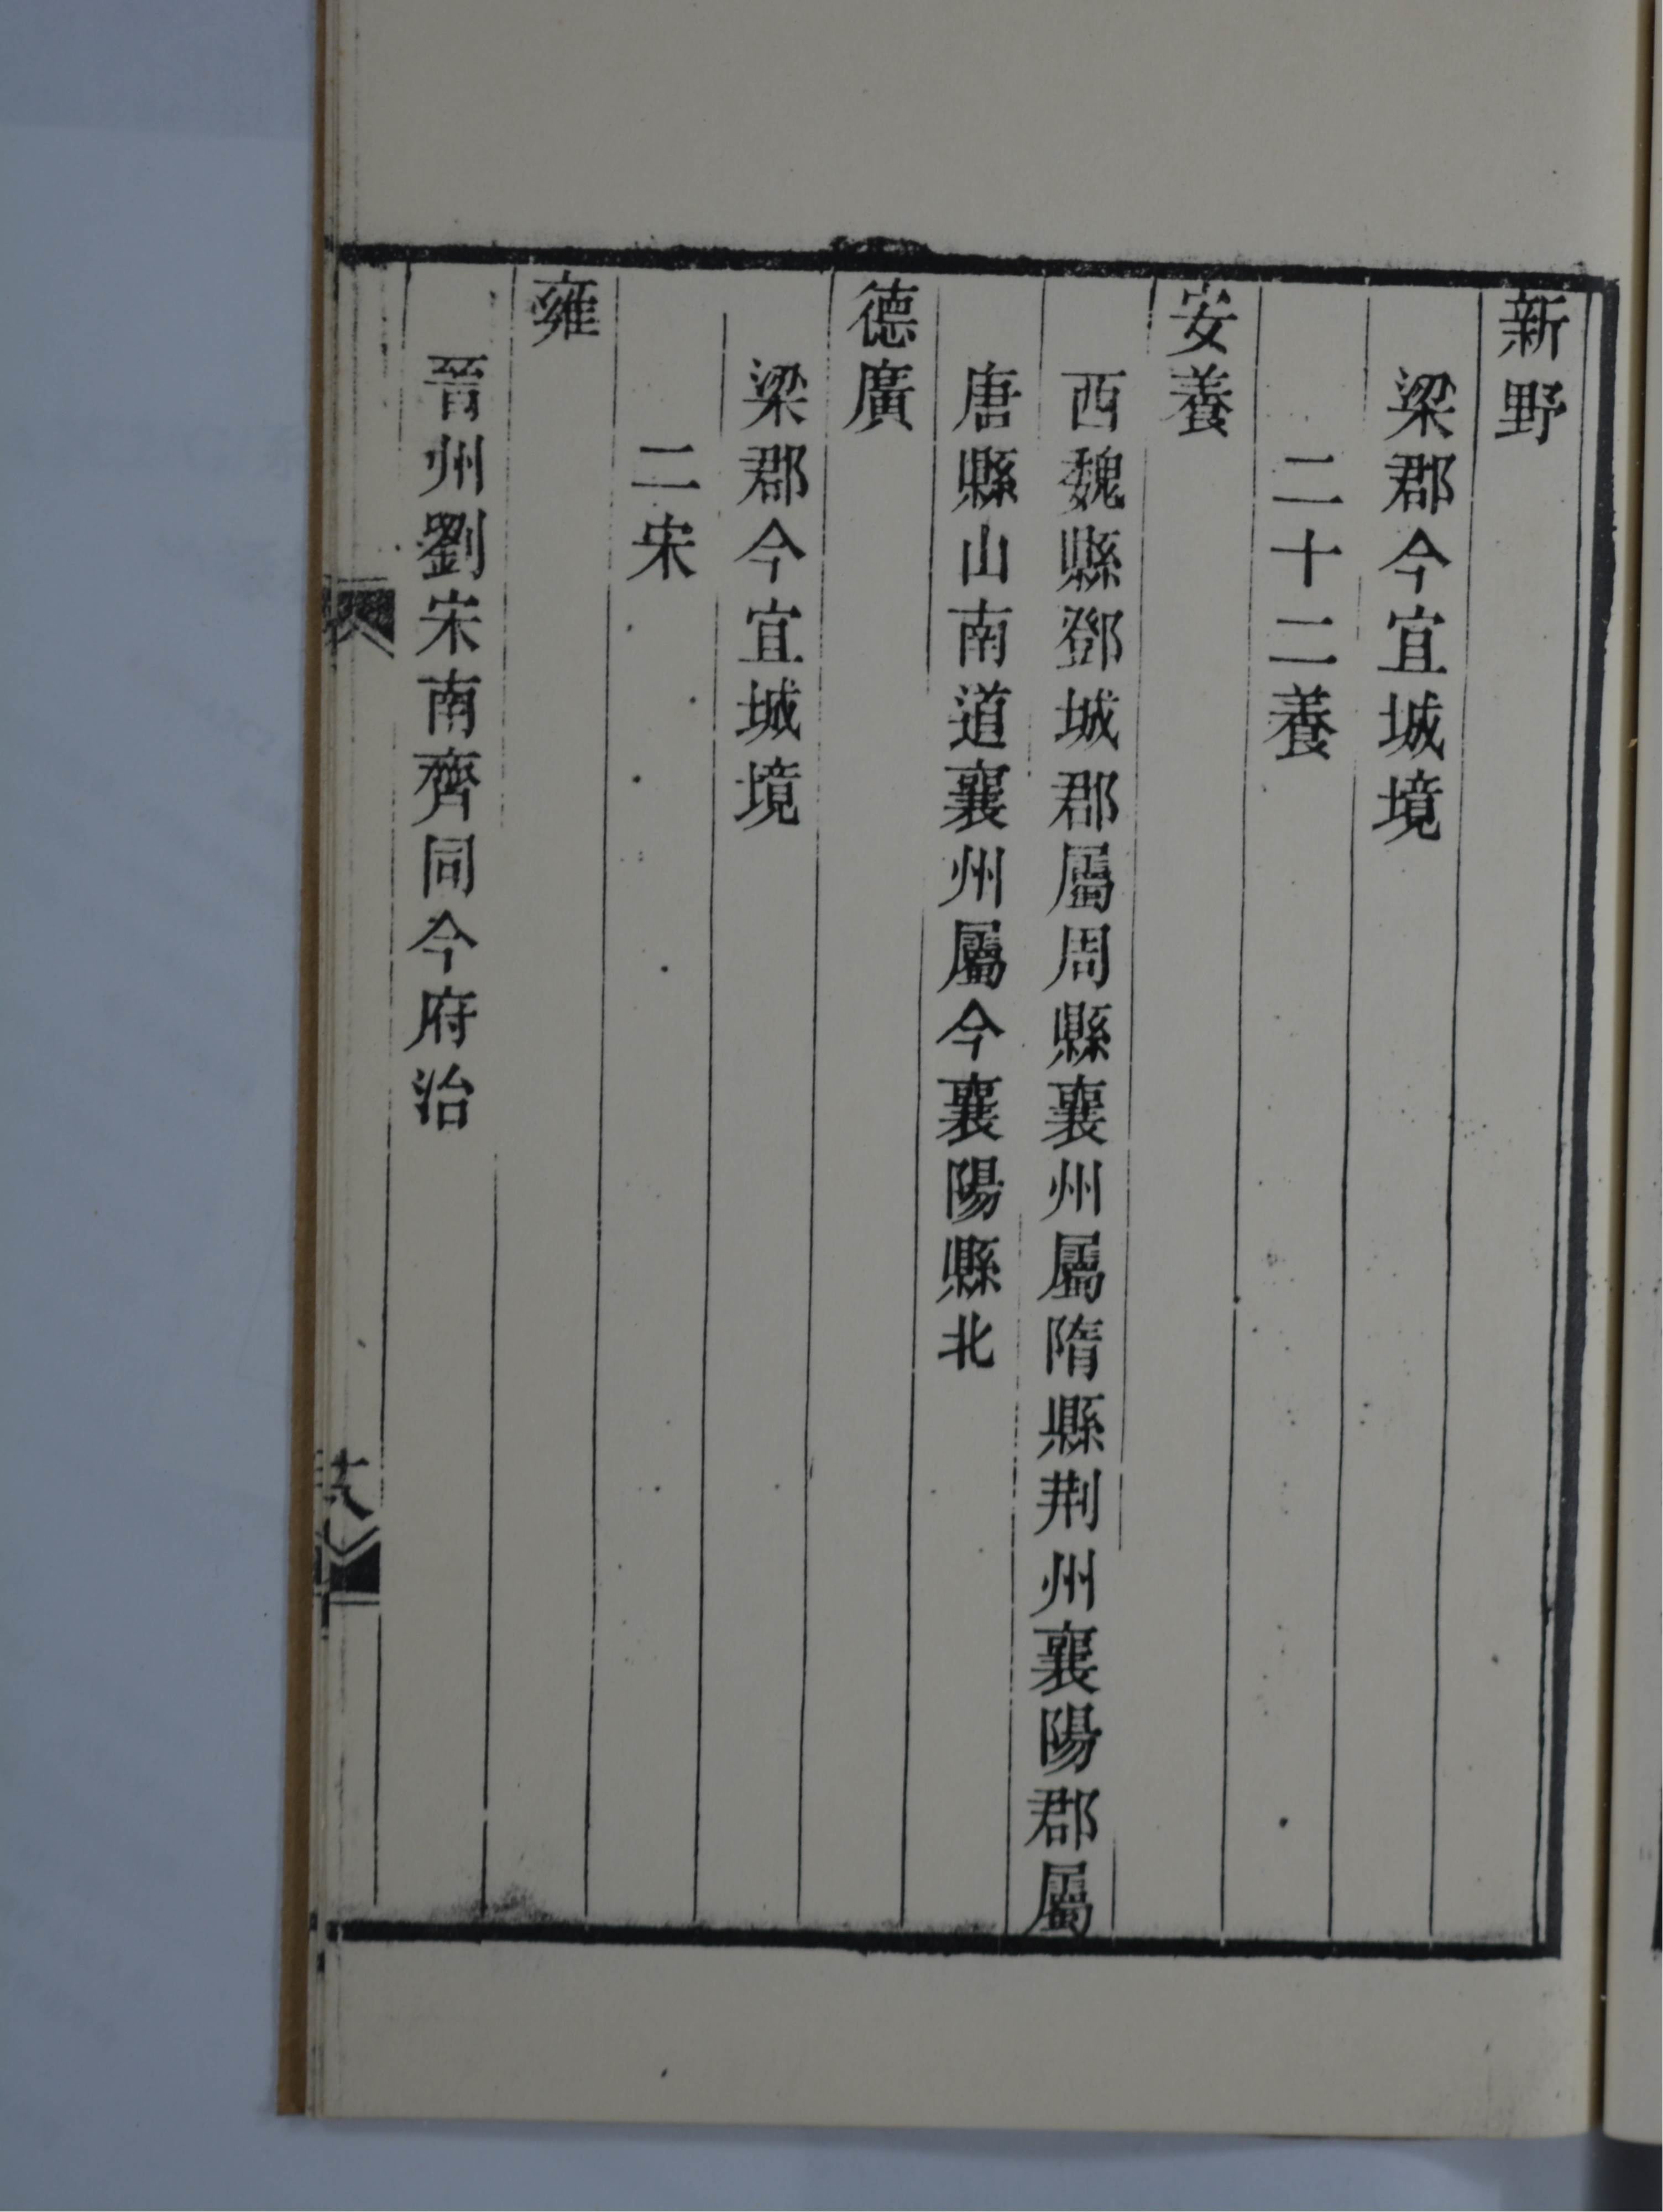 新野
梁郡今宜城境
二十二養
安養
西魏縣鄧城郡屬周縣襄州屬隋縣荆州襄陽郡屬
唐縣山南道襄州屬今襄陽縣北
德廣
梁郡今宜城境
二宋
雍
晉州劉宋南齊同今府治